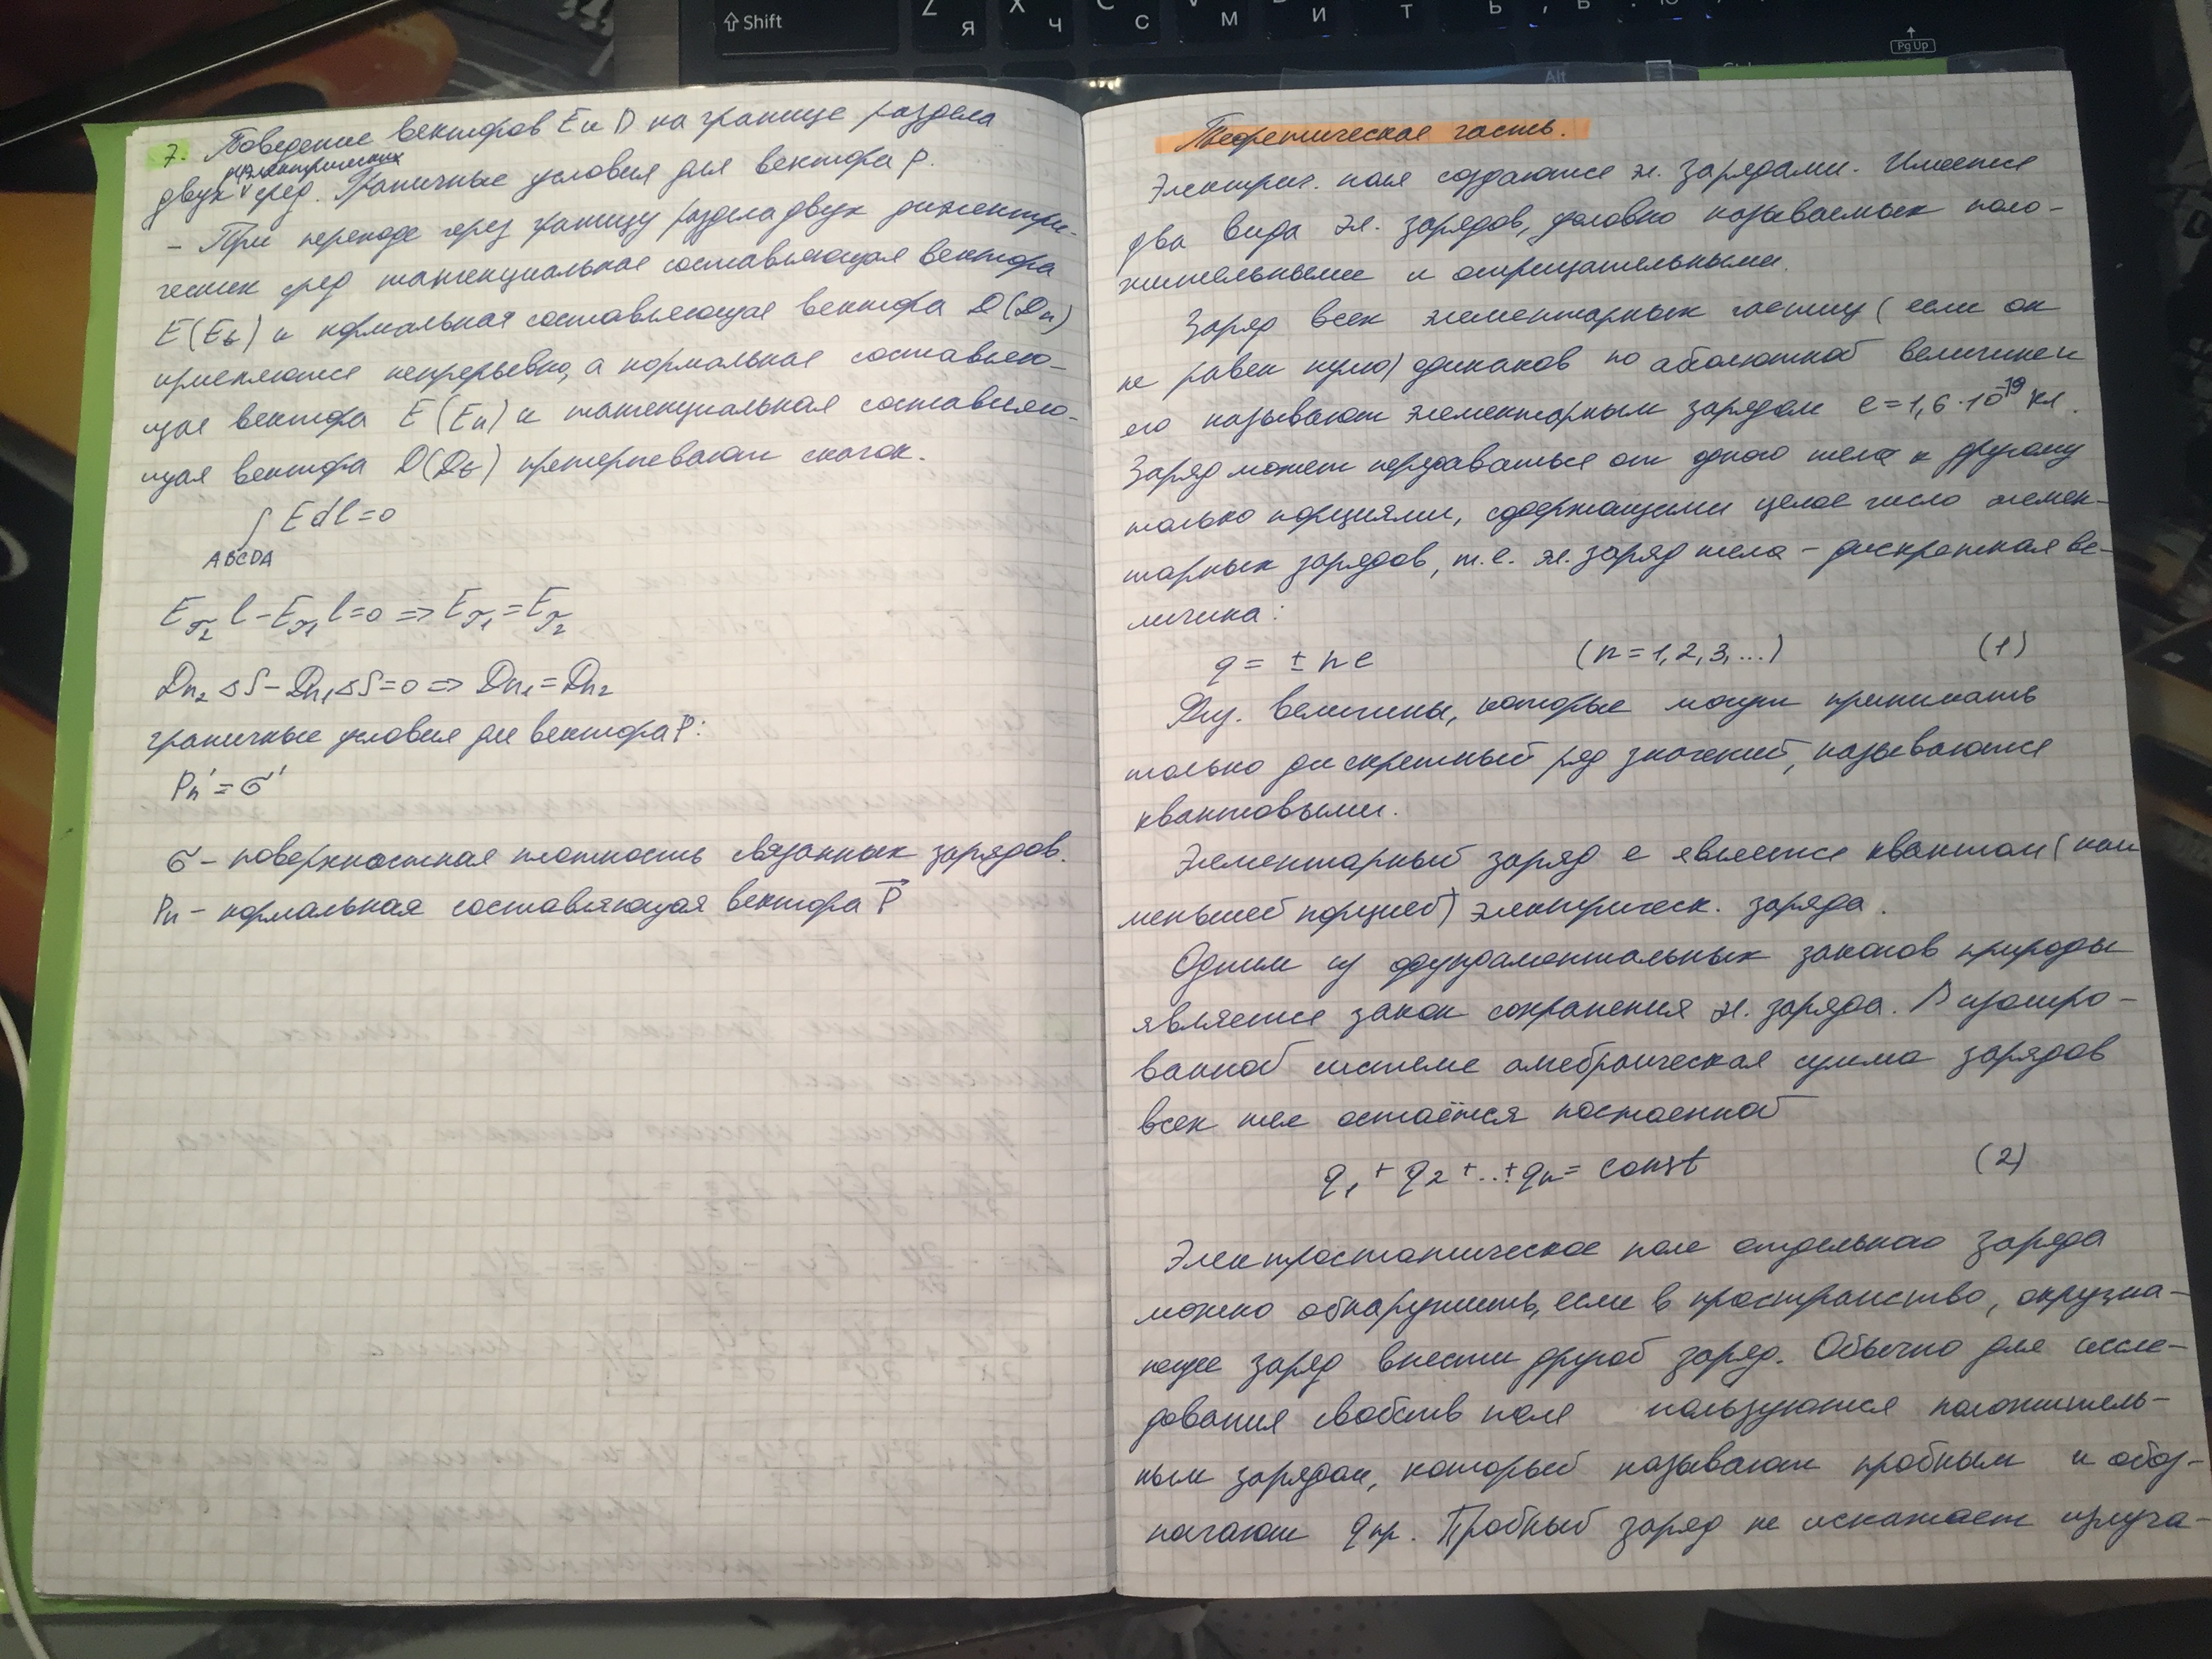 Shift
Z Я
X Ч
C С
V М
И
Т
Ь
Pg Up
Alt
7. Поведение векторов E и D на границе раздела
диэлектрических
двух сред. Граничные условия для вектора P.
- При переходе через границу раздела двух диэлектри-
ческих сред тангенциальная составляющая вектора
E (Eτ) и нормальная составляющая вектора D (Dn)
изменяются непрерывно, а нормальная составляю-
щая вектора E (En) и тангенциальная составляю-
щая вектора D (Dτ) претерпевают скачок.
∫ Edl = 0
ABCDA
Eτ₂ l - Eτ₁ l = 0 => Eτ₁ = Eτ₂
Dn₂ ΔS - Dn₁ ΔS = 0 => Dn₁ = Dn₂
граничные условия для вектора P:
Pn' = σ'
σ - поверхностная плотность связанных зарядов.
Pn - нормальная составляющая вектора P⃗
Теоретическая часть.
Электрич. поля создаются эл. зарядами. Имеется
два вида эл. зарядов, условно называемых поло-
жительными и отрицательными.
Заряд всех элементарных частиц (если он
не равен нулю) одинаков по абсолютной величине и
его называют элементарным зарядом e = 1,6·10⁻¹⁹ Кл.
Заряд может передаваться от одного тела к другому
только порциями, содержащими целое число элемен-
тарных зарядов, т.е. эл. заряд тела - дискретная ве-
личина:
q = ± ne (n = 1, 2, 3, ...) (1)
Физ. величины, которые могут принимать
только дискретный ряд значений, называются
квантовыми.
Элементарный заряд e является квантом (наи
меньшей порцией) электрическ. заряда.
Одним из фундаментальных законов природы
является закон сохранения эл. заряда. В изолиро-
ванной системе алгебраическая сумма зарядов
всех тел остаётся постоянной
q₁ + q₂ + ... ± qn = const (2)
Электростатическое поле отдельного заряда
можно обнаружить, если в пространство, окружа-
ющее заряд внести другой заряд. Обычно для иссле-
дования свойств поля пользуются положитель-
ным зарядом, который называют пробным и обоз-
начают qпр. Пробный заряд не искажает изуча-